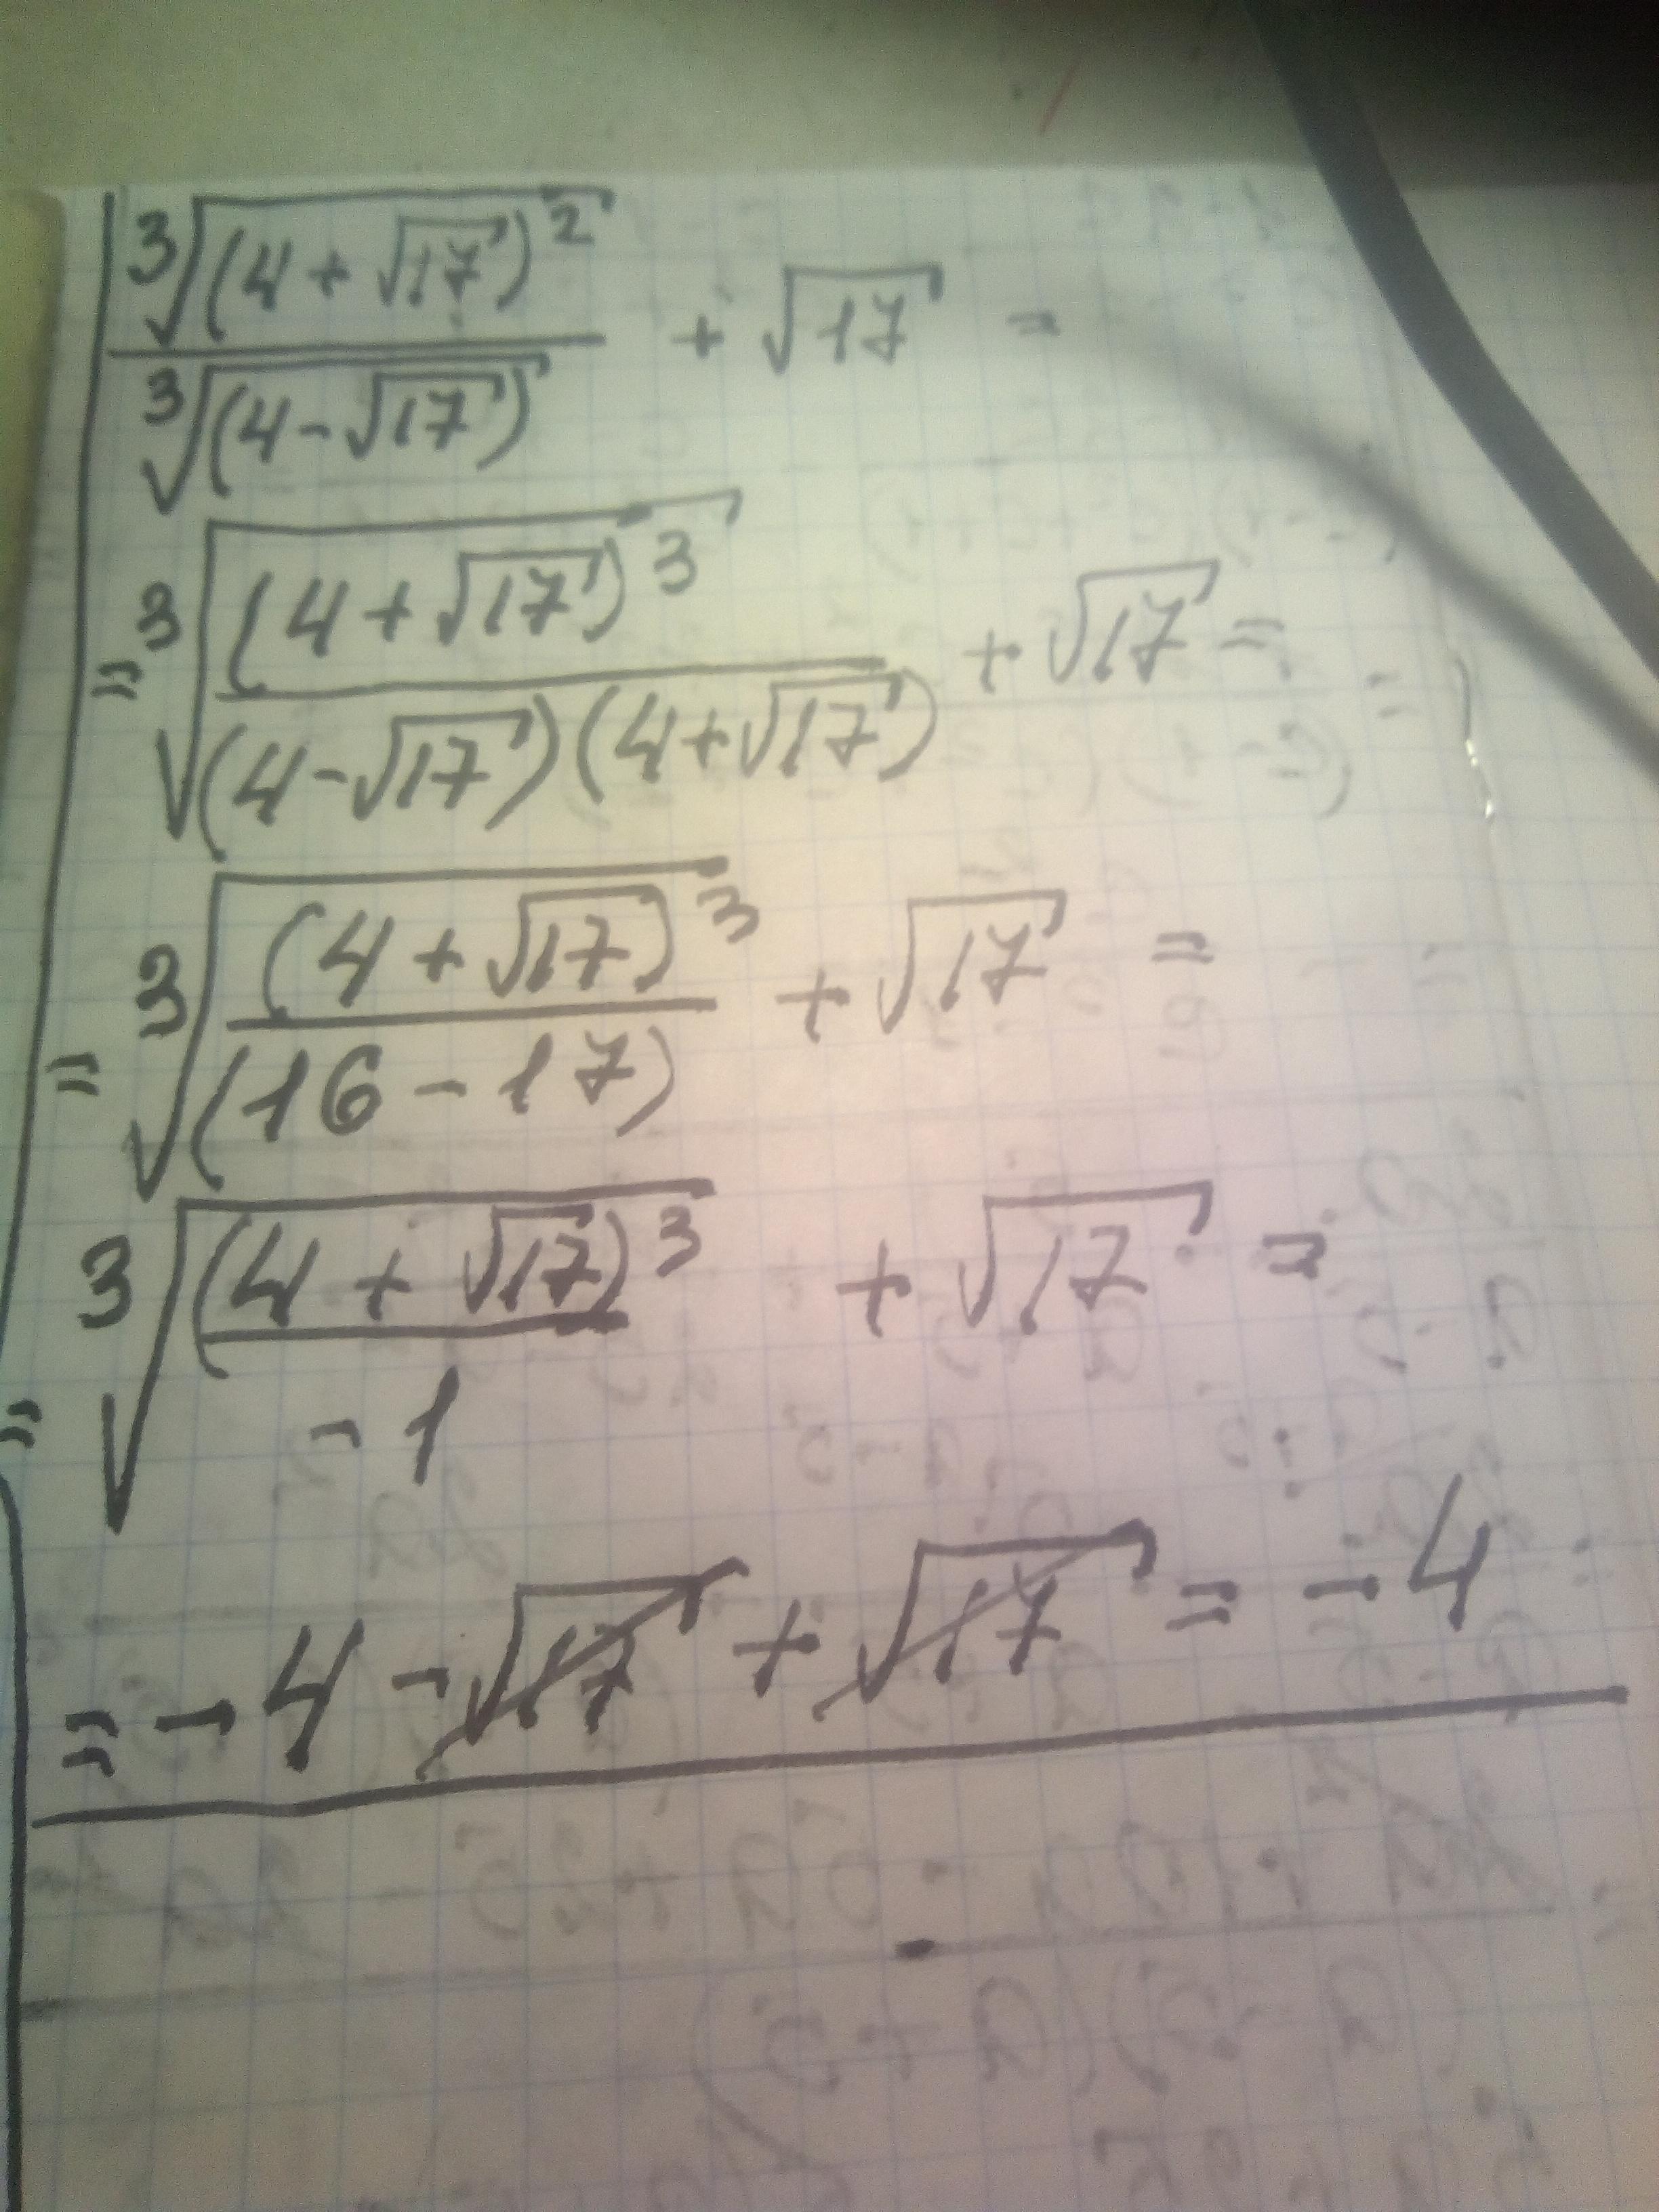 ∛(4+√17)² / ∛(4-√17) + √17 =
= ∛((4+√17)³ / (4-√17)(4+√17)) + √17 =
= ∛((4+√17)³ / (16-17)) + √17 =
= ∛((4+√17)³ / -1) + √17 =
= -4 - √17 + √17 = -4